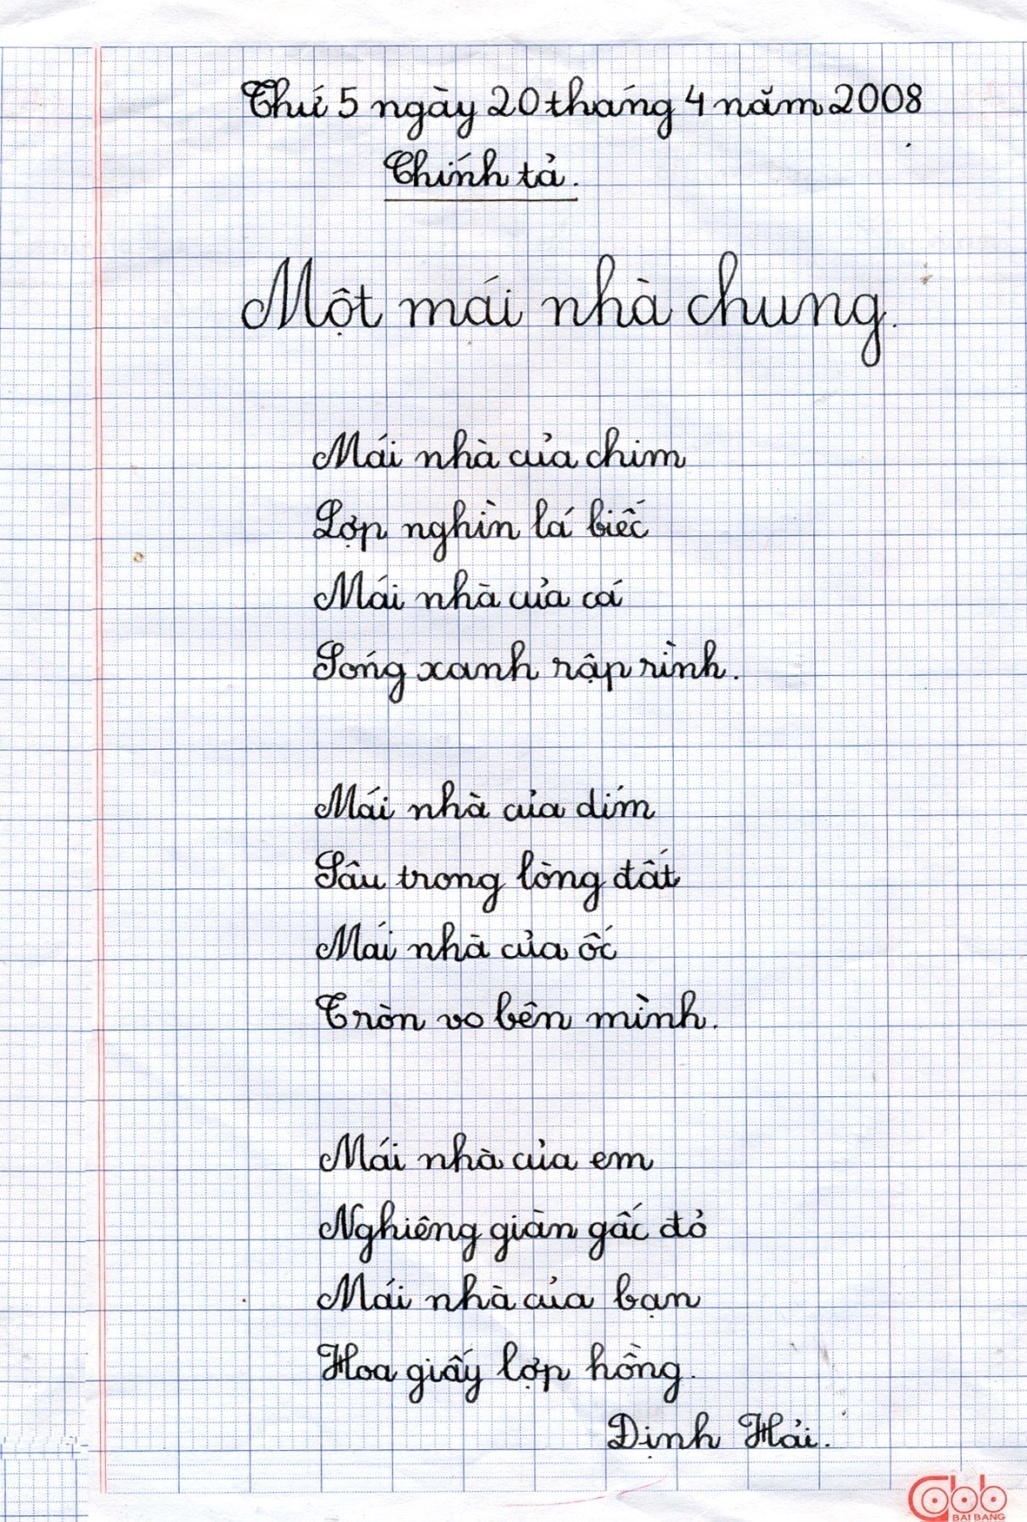 Thứ 5 ngày 20 tháng 4 năm 2008
Chính tả.
Một mái nhà chung.
Mái nhà của chim
Lợp nghìn lá biếc
Mái nhà của cá
Sóng xanh rập rình.
Mái nhà của dím
Sâu trong lòng đất
Mái nhà của ốc
Tròn vo bên mình.
Mái nhà của em
Nghiêng giàn gấc đỏ
Mái nhà của bạn
Hoa giấy lợp hồng.
Định Hải.
BAI BANG